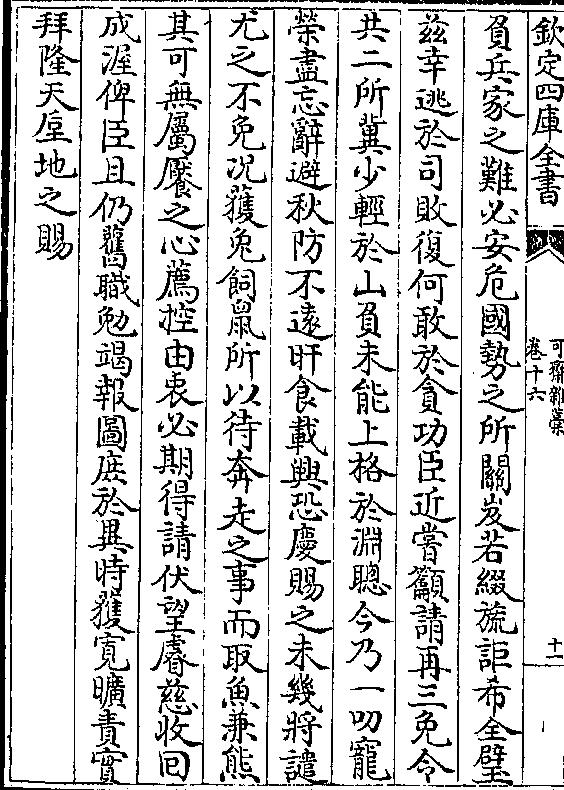 欽定四庫全書
可齋雜藁
卷十六
十一
負兵家之難必安危國勢之所關岌若綴旒詎希全璧
兹幸逃於司敗復何敢於貪功臣近嘗籲請再三免令
共二所冀少輕於山負未能上格於淵聰今乃一叨寵
榮盡忘辭避秋防不遠旰食載興恐慶賜之未幾將譴
尤之不免况獲兔飼鼠所以待奔走之事而取魚兼熊
其可無屬饜之心薦控由衷必期得請伏望睿慈收回
成渥俾臣且仍舊職勉竭報圖庶於異時獲寛曠責實
拜隆天厚地之賜